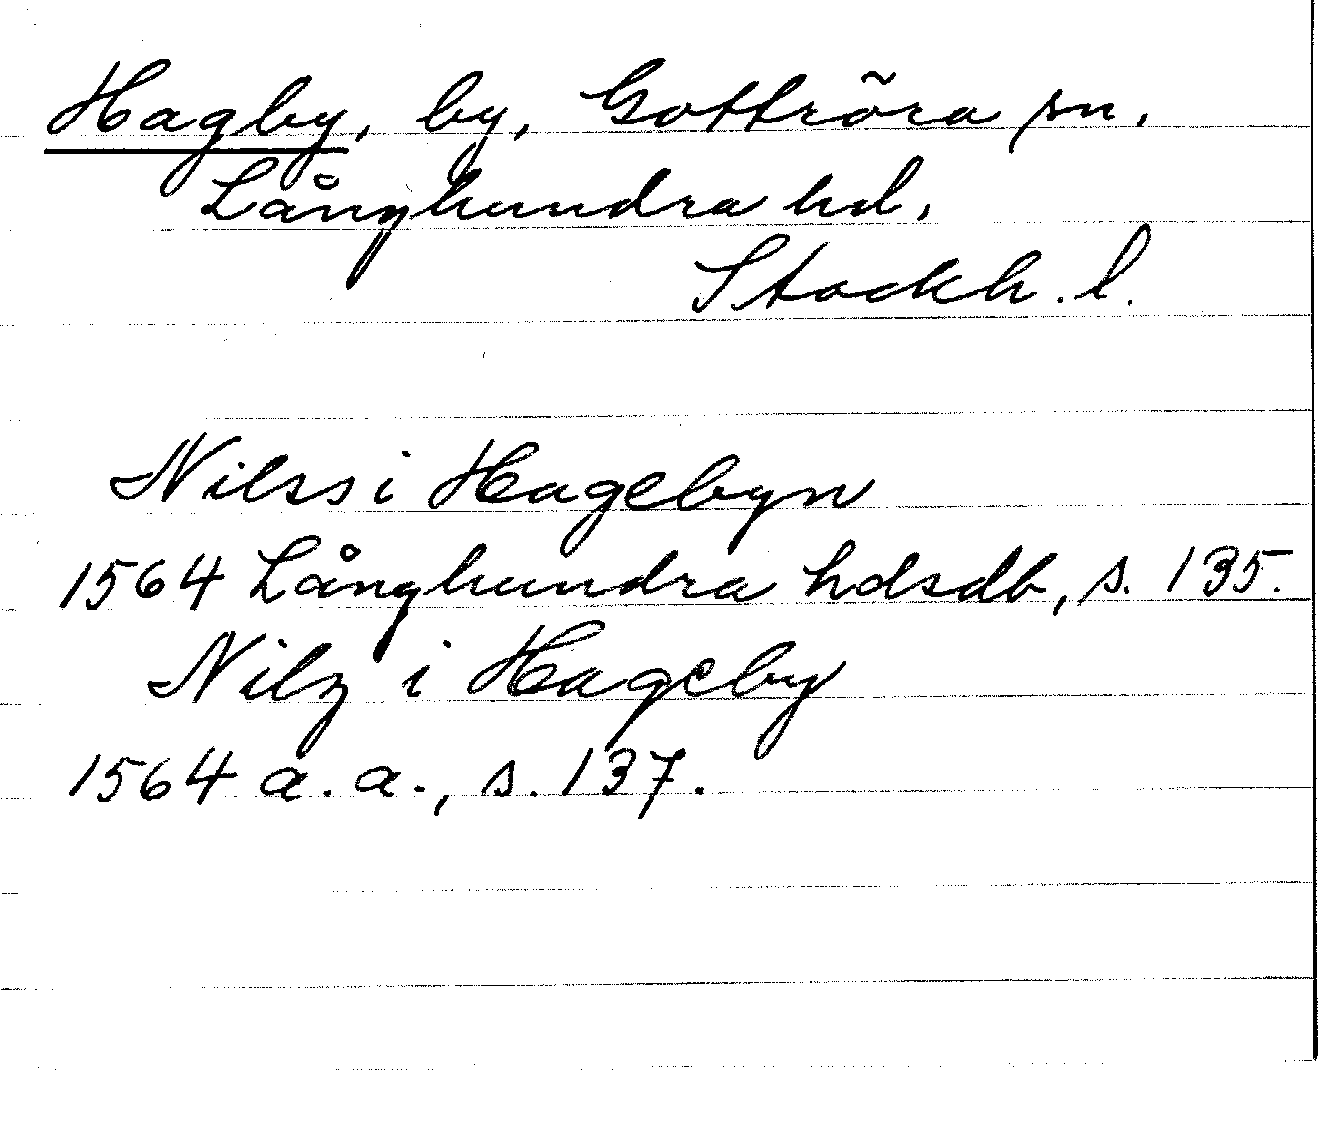 Hagby, by, Gottröra sn,
Långhundra hd,
Stockh. l.
Nilss i Hagebyn
1564 Långhundra hdsdb, s. 135.
Nilz i Hageby
1564 a. a., s. 137.